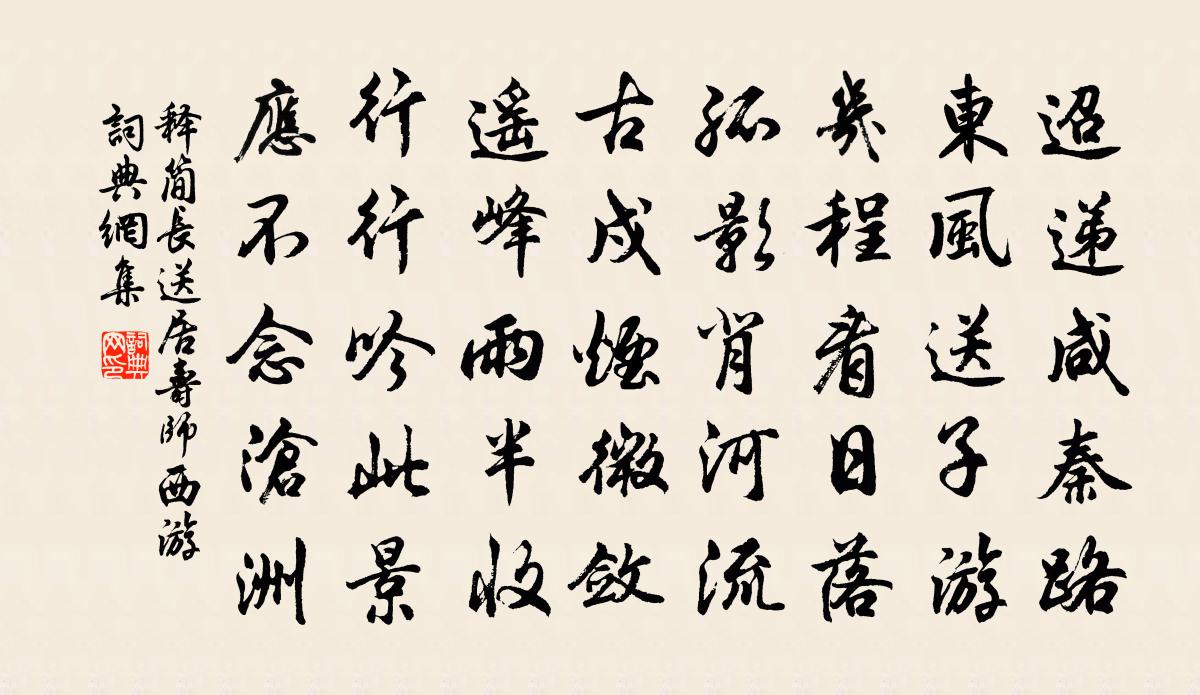 迢递咸秦路
東風送子游
幾程看日落
孤影背河流
古戍煙微敛
遥峰雨半收
行行吟此景
應不念滄洲
释簡長送居壽師西游
詞典網集
詞典網印